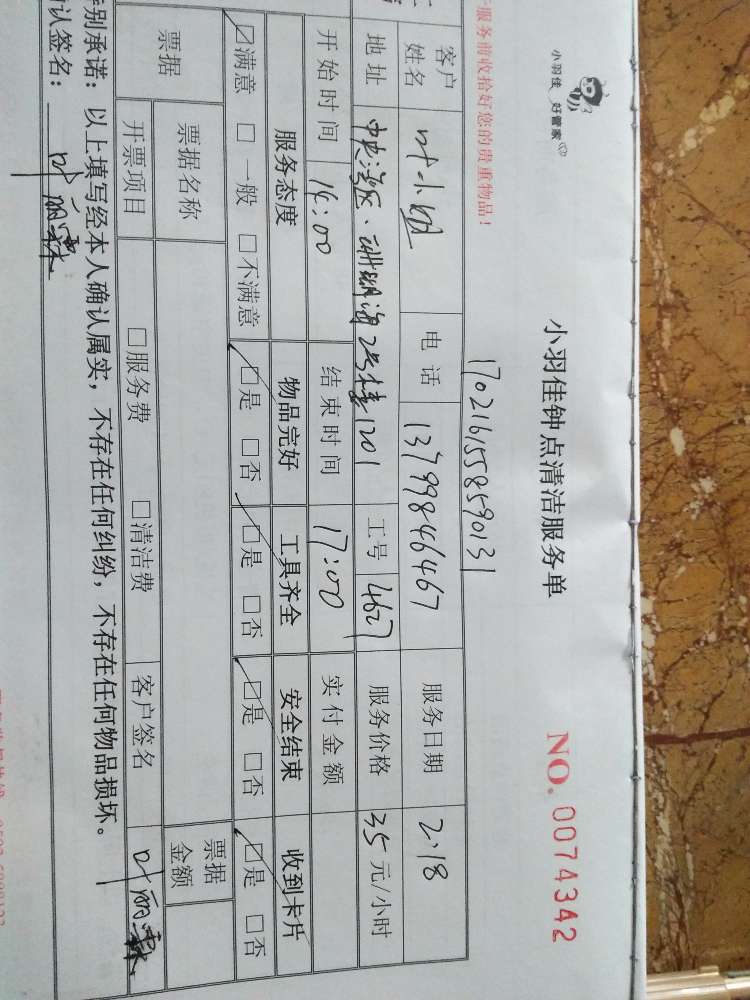 小羽佳 好管家
小羽佳钟点清洁服务单
NO. 0074342
服务前收拾好您的贵重物品!
1702161558590131
客户姓名 叶小姐 电话 13799846467 服务日期 2.18
地址 中央湾区·珊瑚海2号楼1201 工号 4627 服务价格 35元/小时
开始时间 14:00 结束时间 17:00 实付金额
服务态度 物品完好 工具齐全 安全结束 收到卡片
☑满意 □一般 □不满意 ☑是 □否 ☑是 □否 ☑是 □否 ☑是 □否
票据 票据名称 票据金额
开票项目 □服务费 □清洁费 客户签名 叶丽霖
别承诺:以上填写经本人确认属实,不存在任何纠纷,不存在任何物品损坏。
认签名: 叶丽霖